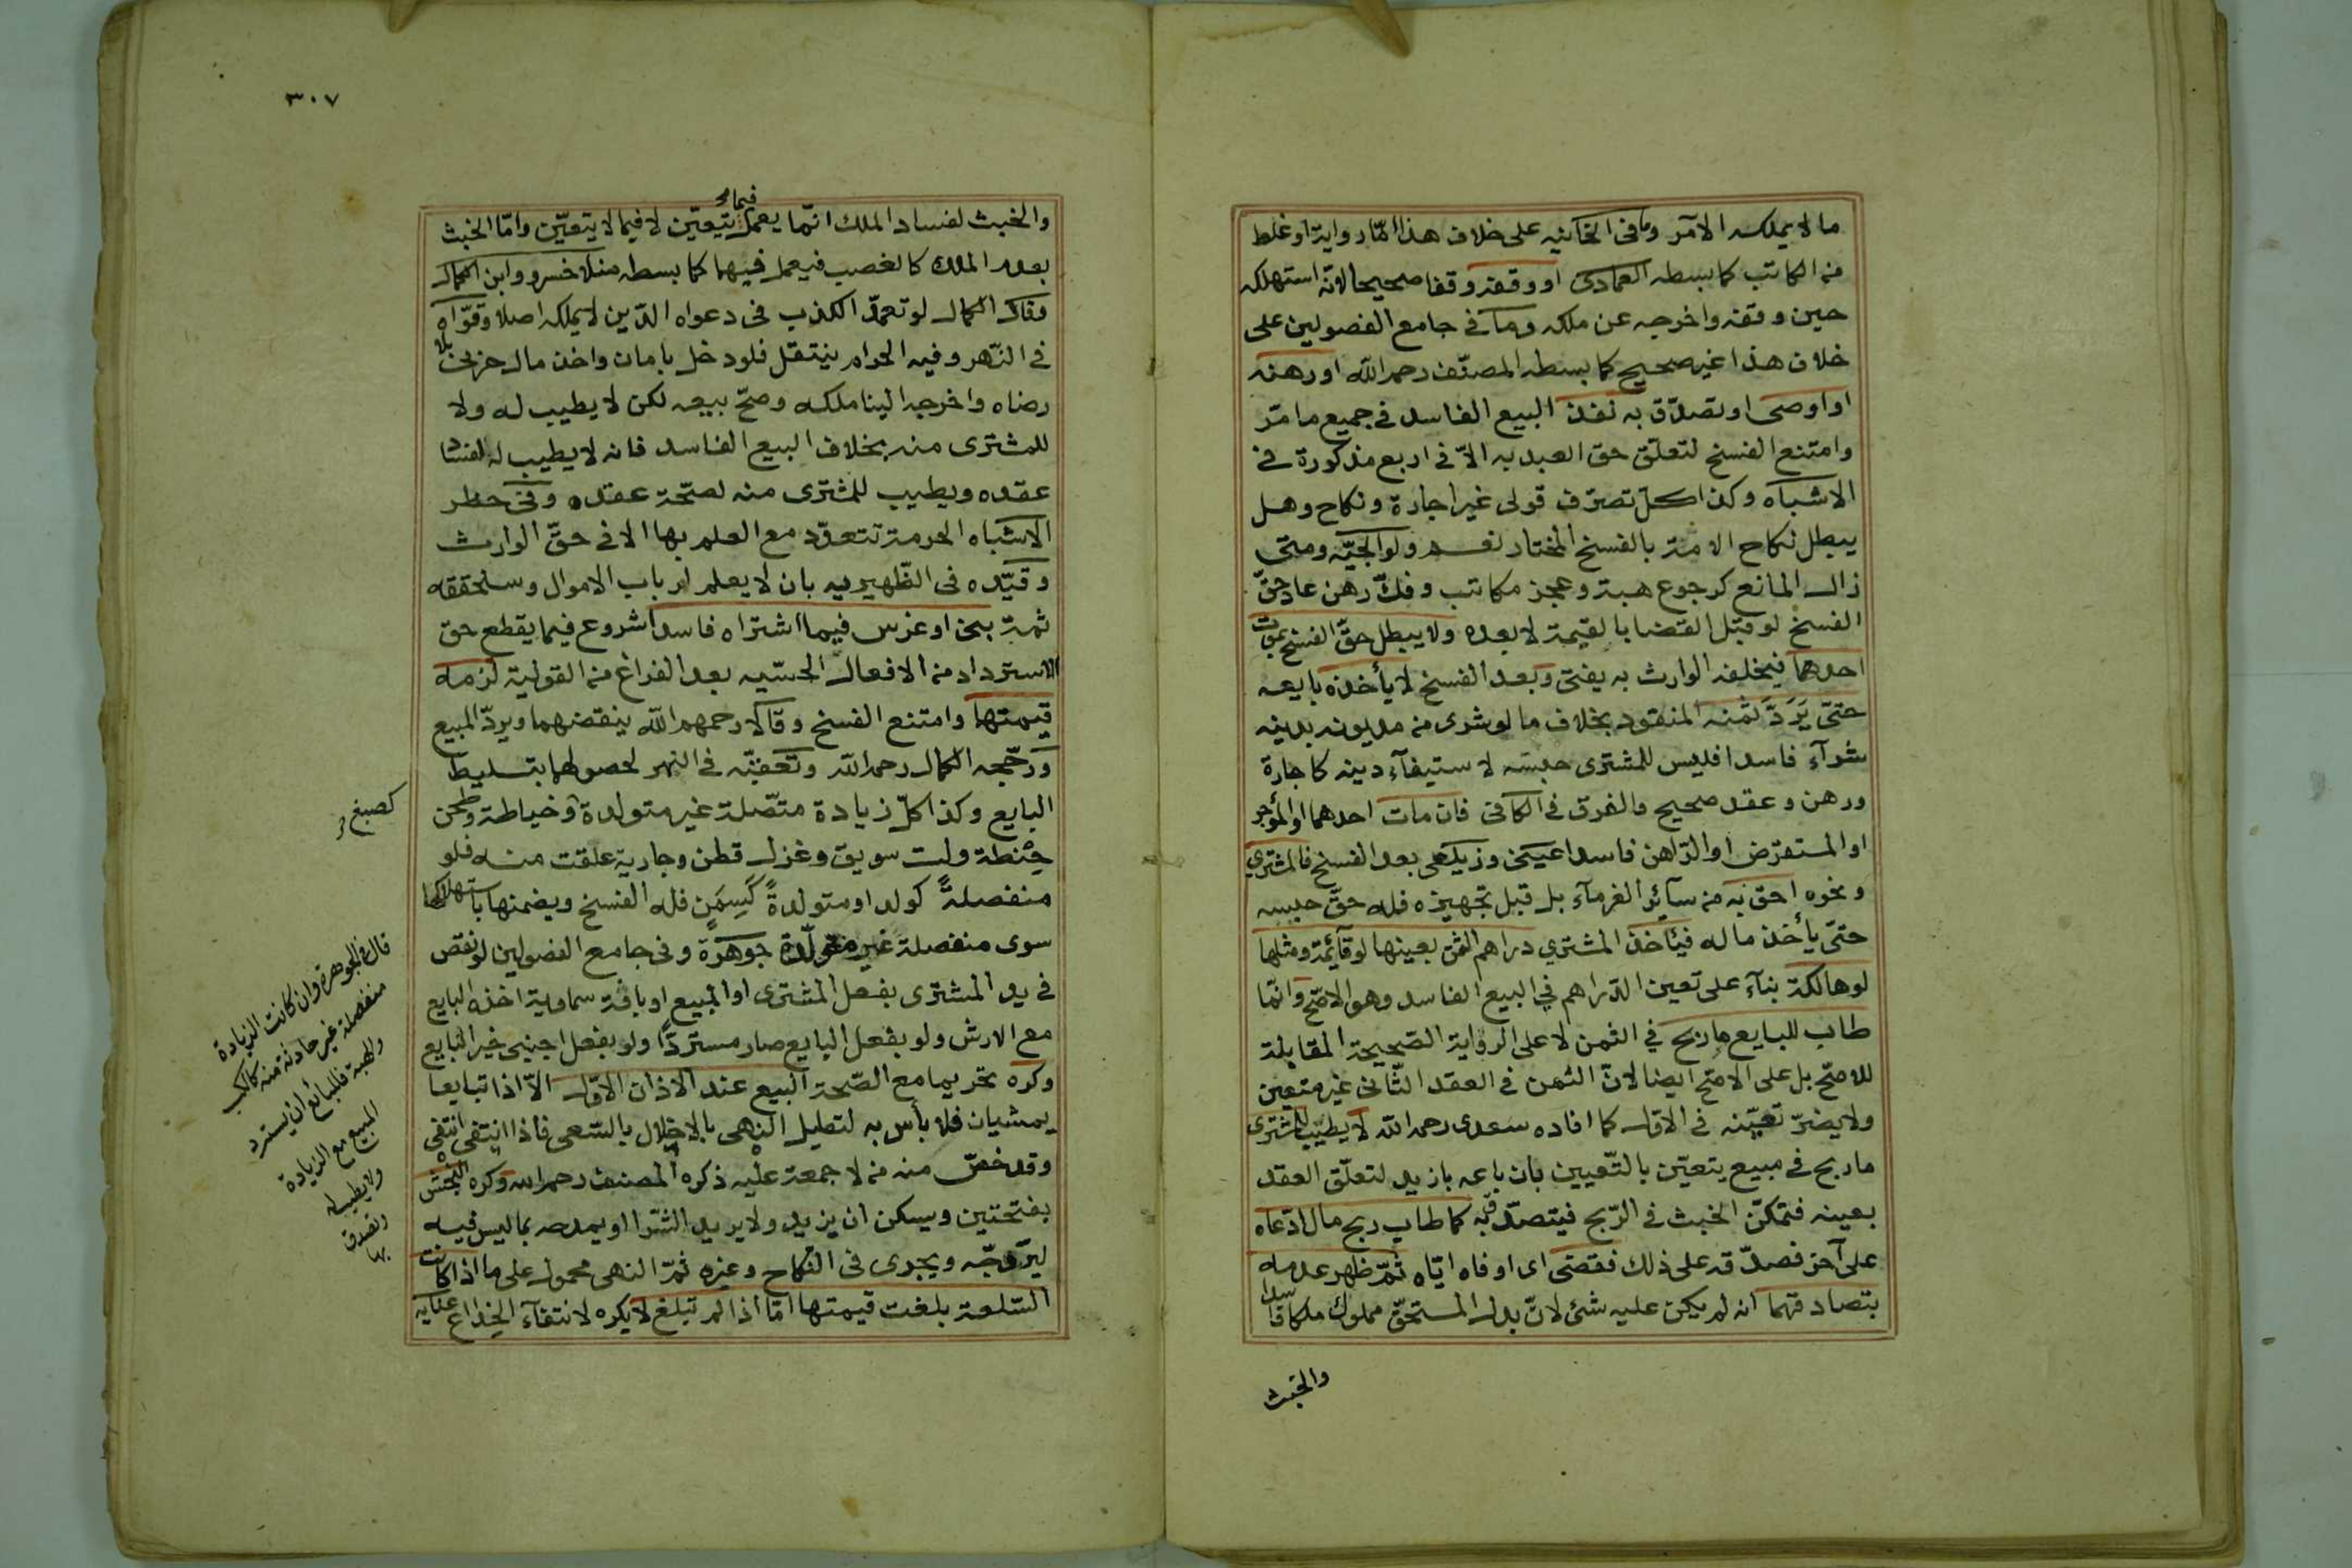 ما لا يملكه الآمر وما فى الخانيه على خلاف هذا امّا رواية او غلط
من الكاتب كما بسطه العمادى او وقفه وقفا صحيحا لانّه استهلكه
حين وقفه واخرجه عن ملكه وما فى جامع الفصولين على
خلاف هذا غير صحيح كما بسطه المصنّف رحمه الله او رهنه
او اوصى او تصدّق به نفذ البيع الفاسد فى جميع ما مرّ
وامتنع الفسخ لتعلّق حق العبد به الاّ فى اربع مذكورة فى
الاشباه وكذا كلّ تصرّف قولى غير اجارة ونكاح وهل
يبطل نكاح الامة بالفسخ المختار نعم ولوالجيّه ومتى
زال المانع كرجوع هبة وعجز مكاتب وفكّ رهن عاد حقّ
الفسخ لو قبل القضا بالقيمة لا بعده ولا يبطل حقّ الفسخ بموت
احدهما فيخلفه الوارث به يفتى وبعد الفسخ لا يأخذه بايعه
حتىّ يَرَدَّ ثمنه المنقود بخلاف ما لو شرى من مديونه بدينه
شرآء فاسدا فليس للمشترى حبسه لاستيفآء دينه كاجارة
ورهن وعقد صحيح والفرق فى الكافى فان مات احدهما او المؤجر
او المستقرض او الرّاهن فاسدا عينى وزيلعى بعد الفسخ فالمشترى
ونحوه احق به من سآئر الغرمآء بل قبل تجهيزه فله حقّ حبسه
حتىّ يأخذ ماله فيأخذ المشتري دراهم الثمن بعينها لو قآئمة ومثلها
لو هالكة بنآء على تعين الدّراهم في البيع الفاسد وهو الاصّح وانّما
طاب للبايع ما ربح في الثمن لا على الرواية الصّحيحة المقابلة
للاصّح بل على الاصّح ايضا لانّ الثمن فى العقد الثّانى غير متعين
ولا يضرّ تعيّنه فى الاوّل كما افاده سعدى رحمه الله لا يطيب للمشترى
ما ربح فى مبيع يتعيّن بالتّعيين بان باعه بازيد لتعلّق العقد
بعينه فتمكّن الخبث فى الرّبح فيتصدّق به كما طاب ربح مال ادّعاه
على آخر فصدّقه على ذلك فقضى اى اوفاه ايّاه ثمّ ظهر عدمه
بتصادقهما انه لم يكن عليه شئ لانّ بدل المستحقّ مملوك ملكا فاسدا
والخبث
٣٠٧
والخبث لفساد الملك انّما يعمل فيما يتعيّن لا فيما لا يتعيّن وامّا الخبث
بعدم الملك كالغصب فيعمل فيهما كما بسطه منلا خسرو وابن الكمال
وقال الكمال لو تعمدّ الكذب فى دعواه الدّين لا يملكه اصلا وقوّاه
فى النّهر وفيه الحرام ينتقل فلو دخل بامان واخذ مال حربى بلا
رضاه واخرجه الينا ملكه وصحّ بيعه لكن لا يطيب له ولا
للمشترى منه بخلاف البيع الفاسد فانه لا يطيب له لفساد
عقده ويطيب للمشترى منه لصحّة عقده وفى حظر
الاشباه الحرمة تتعدّد مع العلم بها الا فى حقّ الوارث
وقيّده فى الظّهيريه بان لا يعلم ارباب الاموال وسنحققه
ثمة بنى او غرس فيما اشتراه فاسدا شروع فيما يقطع حق
الاسترداد من الافعال الحسّيه بعد الفراغ من القولية لزمه
قيمتها وامتنع الفسخ وقالا رحمهم الله ينقضهما ويردّ المبيع
ورحّجه الكمال رحمه الله وتعقبّه فى النهر لحصولهما بتسليط
البايع وكذا كلّ زيادة متّصلة غير متولدة وخياطة وطحن
كصبغ و
حِنْطة ولت سويق وغزل قطن وجارية علقت منه فلو
منفصلةً كولد او متولدةً كَسِمَنٍ فله الفسخ ويضمنها باستهلاكها
سوى منفصلة غير متولّدة جوهرة وفى جامع الفصولين لو نقص
فى يد المشترى بفعل المشترى او المبيع او بافة سماوية اخذه البايع
مع الارش ولو بفعل البايع صار مستردّاً ولو بفعل اجنبى خير البايع
وكره تحريما مع الصّحة البيع عند الاذان الاوّل الاّ اذا تبايعا
يمشيان فلا بأس به لتعليل النهى بالاخلال بالسّعى فاذا انتفى انتفى
وقد خصّ منه من لا جمعة عليه ذكره المصنف رحمه الله وكره النجش
بفتحتين ويسكن ان يزيد ولا يريد الشّرا او يمدحه بما ليس فيه
ليروّجه ويجرى فى النكاح وغيره ثمّ النهى محمول على ما اذا كانت
السّلعة بلغت قيمتها امّا اذا لم تبلغ لا يكره لانتفآء الخداع عنايه
قال فى الجوهرة وان كانت الزيادة
منفصلة غير حادثة منه كالكسب
والهبة فللبائع أن يسترد
المبيع مع الزيادة
ولا يطيب له
وتصدق
بها